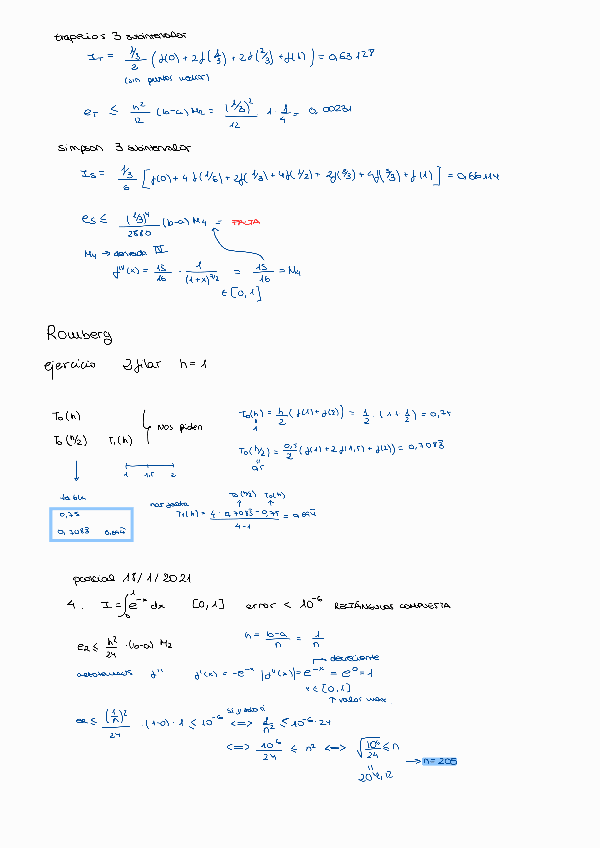 trapecios 3 subintervalos
I_T = (1/3)/2 (f(0) + 2f(1/3) + 2f(2/3) + f(1)) = 0,63127
(sin puntos medios)
e_T ≤ h²/12 (b-a) M₂ = (1/3)²/12 · 1 · 1/4 = 0,00231
simpson 3 subintervalos
I_S = (1/3)/6 [f(0) + 4f(1/6) + 2f(1/3) + 4f(1/2) + 2f(2/3) + 4f(5/3) + f(1)] = 0,66114
e_S ≤ (1/3)⁴/2880 (b-a) M₄ = FALTA
M₄ → derivada IV
f^IV(x) = 15/16 · 1/(1+x)^7/2 = 15/16 = M₄
∈ [0,1]
Romberg
ejercicio 2 filas h = 1
T₀(h)
T₀(h/2) T₁(h)
nos piden
T₀(h) = h/2 (f(1) + f(2)) = 1/2 · (1 + 1/2) = 0,75
1
T₀(h/2) = 0,5/2 (f(1) + 2f(1,5) + f(2)) = 0,7083
0,5
1 1,5 2
tabla
0,75
0,7083 0,694
nos falta
T₀(h/2) T₀(h)
T₁(h) = (4 · 0,7083 - 0,75)/(4-1) = 0,694
parcial 18/1/2021
4. I = ∫₀¹ e^-x dx [0,1] error < 10⁻⁶ RECTÁNGULOS COMPUESTA
e_R ≤ h²/24 · (b-a) M₂
h = (b-a)/n = 1/n
f'' f'(x) = -e^-x |f''(x)| = e^-x = e⁰ = 1
decreciente
x ∈ [0,1]
↑ valor max
e_R ≤ (1/n)²/24 · (1-0) · 1 ≤ 10⁻⁶ <=> 1/n² ≤ 10⁻⁶ · 24
<=> 10⁶/24 ≤ n² <=> √(10⁶/24) ≤ n
→ n = 205
204,12